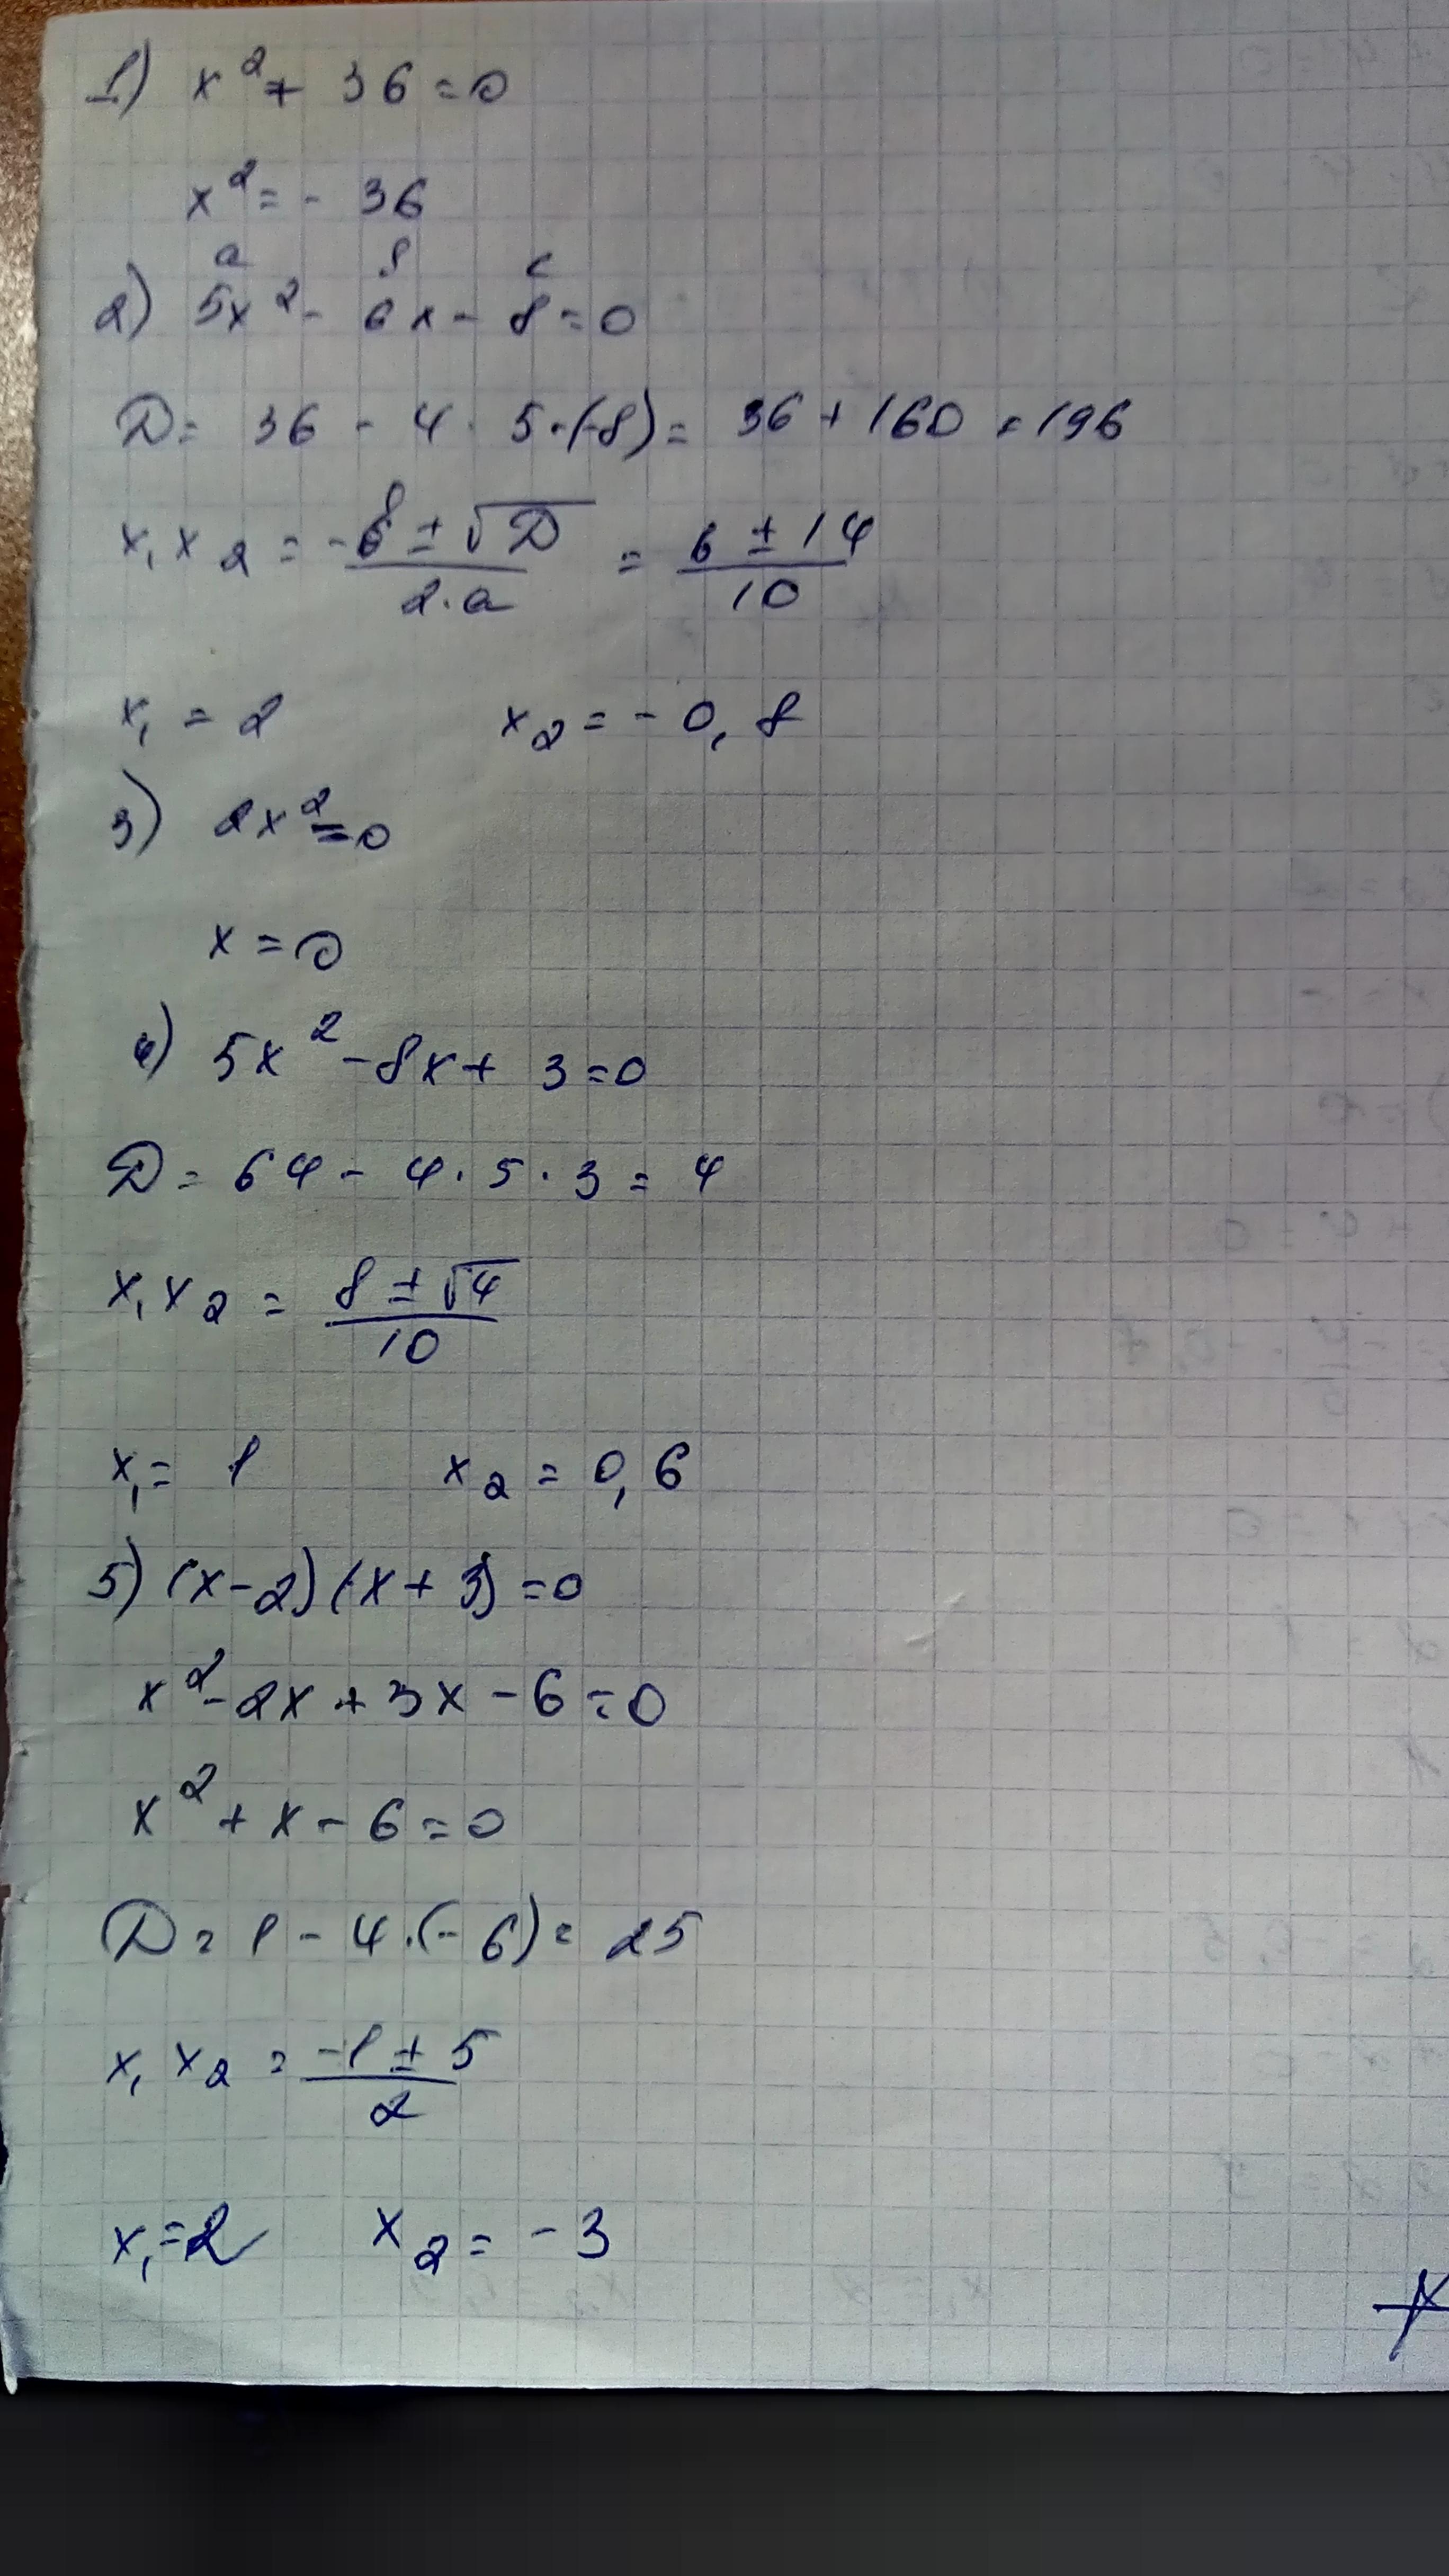 1) x² + 36 = 0
x² = - 36
a в c
2) 5x² - 6x - 8 = 0
D = 36 - 4 · 5 · (-8) = 36 + 160 = 196
x₁ x₂ = (-в ± √D)/(2·a) = (6 ± 14)/10
x₁ = 2 x₂ = - 0,8
3) 2x² = 0
x = 0
4) 5x² - 8x + 3 = 0
D = 64 - 4 · 5 · 3 = 4
x₁ x₂ = (8 ± √4)/10
x₁ = 1 x₂ = 0,6
5) (x - 2) (x + 3) = 0
x² - 2x + 3x - 6 = 0
x² + x - 6 = 0
D = 1 - 4 · (- 6) = 25
x₁ x₂ = (-1 ± 5)/2
x₁ = 2 x₂ = - 3